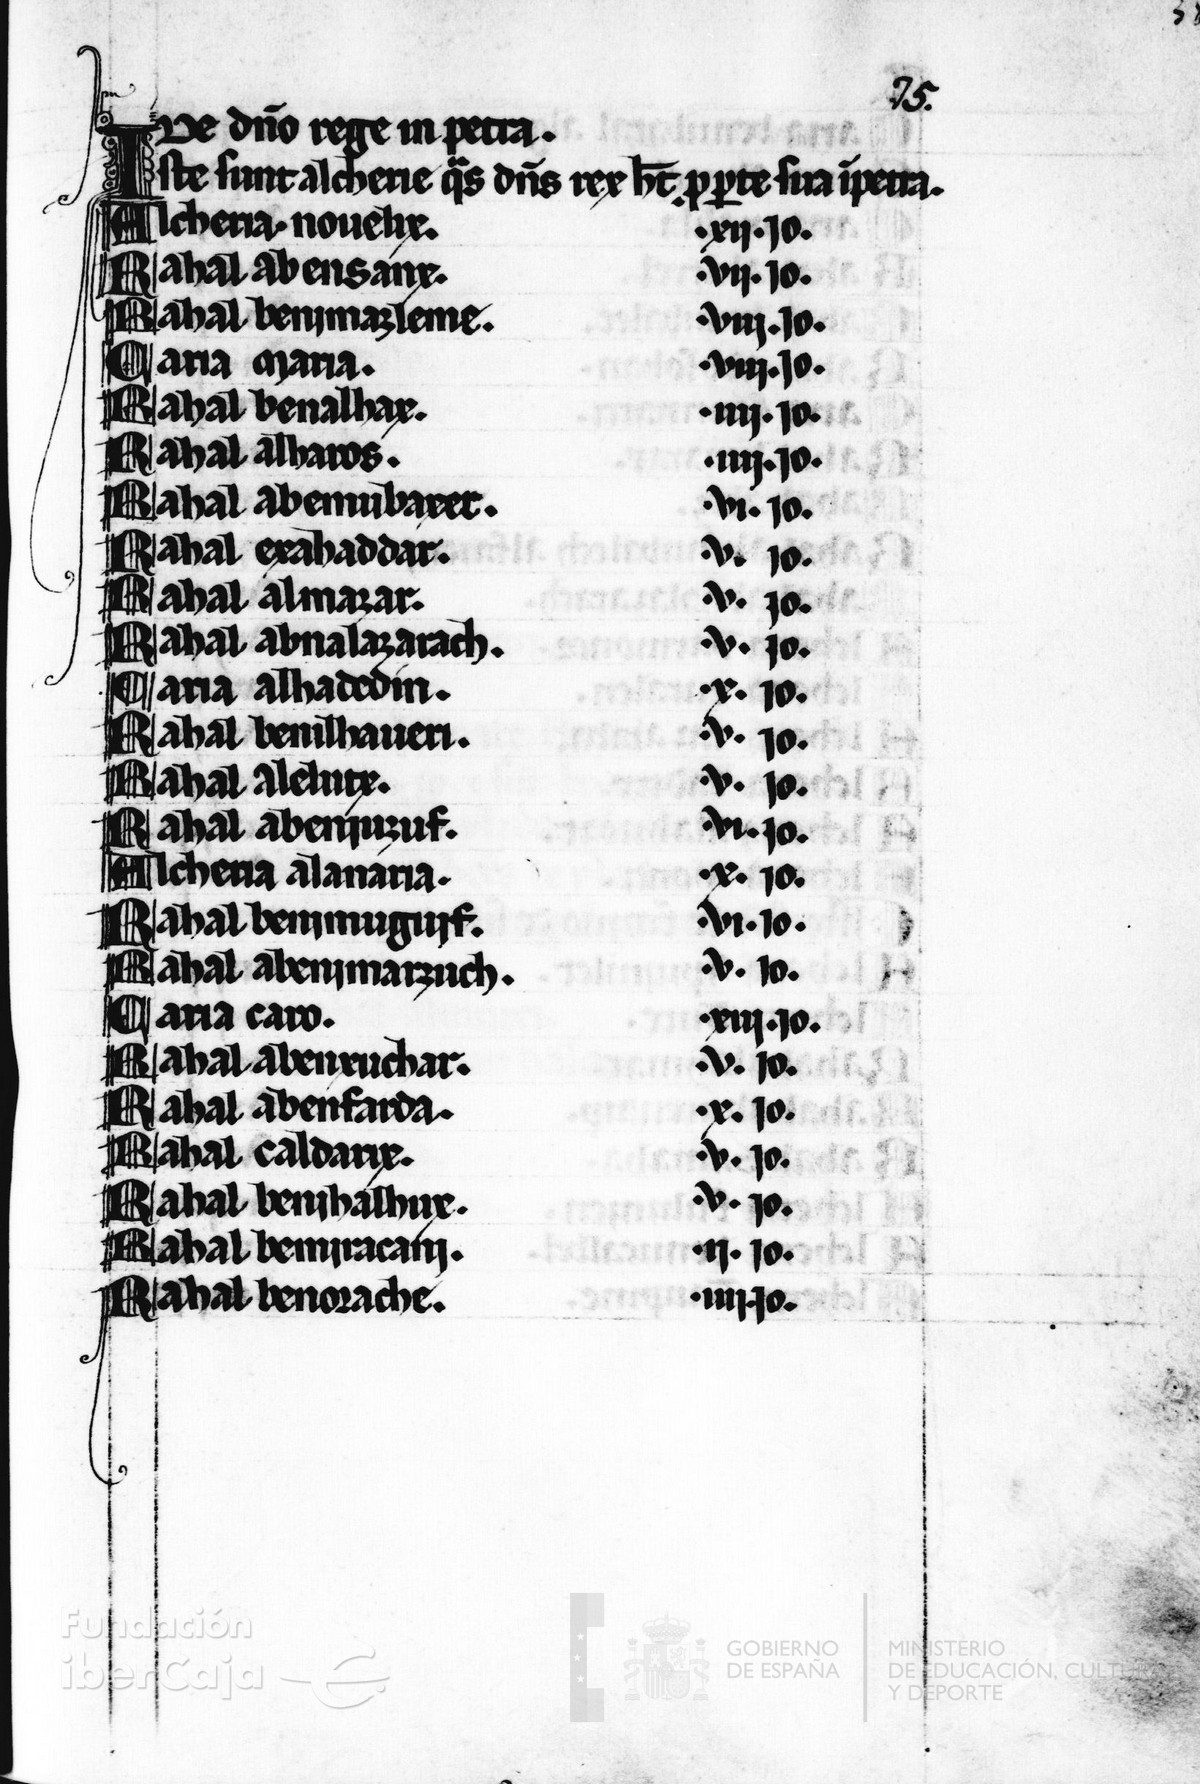 75.
De dño rege in petra.
Iste sunt alcherie q̃s dñs rex h̃t p̱ p̱te sua ĩpetra.
Alcheria novelix. .xij. jo.
Rahal abensanx. .vij. jo.
Rahal benimazleme. .viij. jo.
Caria maria. .viij. jo.
Rahal benalhax. .iiij. jo.
Rahal alharos. .iiij. jo.
Rahal abemubaxer. .vi. jo.
Rahal exahaddar. .v. jo.
Rahal almazar. .v. jo.
Rahal abnalazarach. .v. jo.
Caria alhadedin. .x. jo.
Rahal benilhaueri. .v. jo.
Rahal alelutx. .v. jo.
Rahal abenjuzuf. .vi. jo.
Alcheria alanaria. .x. jo.
Rahal benimuguif. .vi. jo.
Rahal abenimarzuch. .v. jo.
Caria caro. .xiij. jo.
Rahal abenxuchar. .v. jo.
Rahal abenfarda. .x. jo.
Rahal caldarix. .v. jo.
Rahal benihalhux. .v. jo.
Rahal beniracani. .ij. jo.
Rahal benorache. .iiij. jo.
Fundación
iberCaja
GOBIERNO
DE ESPAÑA
MINISTERIO
DE EDUCACIÓN, CULTURA
Y DEPORTE